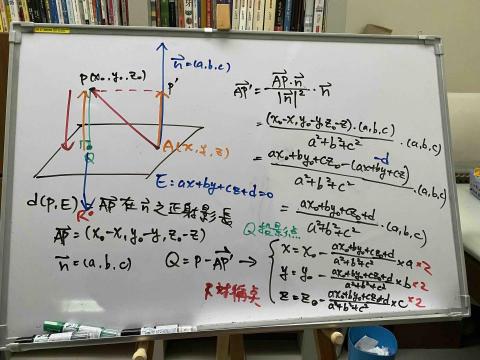 P(x₀,y₀,z₀)
n⃗=(a,b,c)
P'
Q
A(x,y,z)
R
E: ax+by+cz+d=0
d(P,E) = AP⃗ 在 n⃗ 之正射影長
AP⃗=(x₀-x,y₀-y,z₀-z)
n⃗=(a,b,c)
Q=P-AP'⃗ →
R 对稱点
AP'⃗ = AP⃗·n⃗/|n⃗|²·n⃗
= (x₀-x,y₀-y,z₀-z)·(a,b,c)/a²+b²+c²·(a,b,c)
= ax₀+by₀+cz₀-(ax+by+cz)/a²+b²+c²·(a,b,c)
-d
= ax₀+by₀+cz₀+d/a²+b²+c²·(a,b,c)
Q 投影点
x=x₀-ax₀+by₀+cz₀+d/a²+b²+c²×a ×2
y=y₀-ax₀+by₀+cz₀+d/a²+b²+c²×b ×2
z=z₀-ax₀+by₀+cz₀+d/a²+b²+c²×c ×2